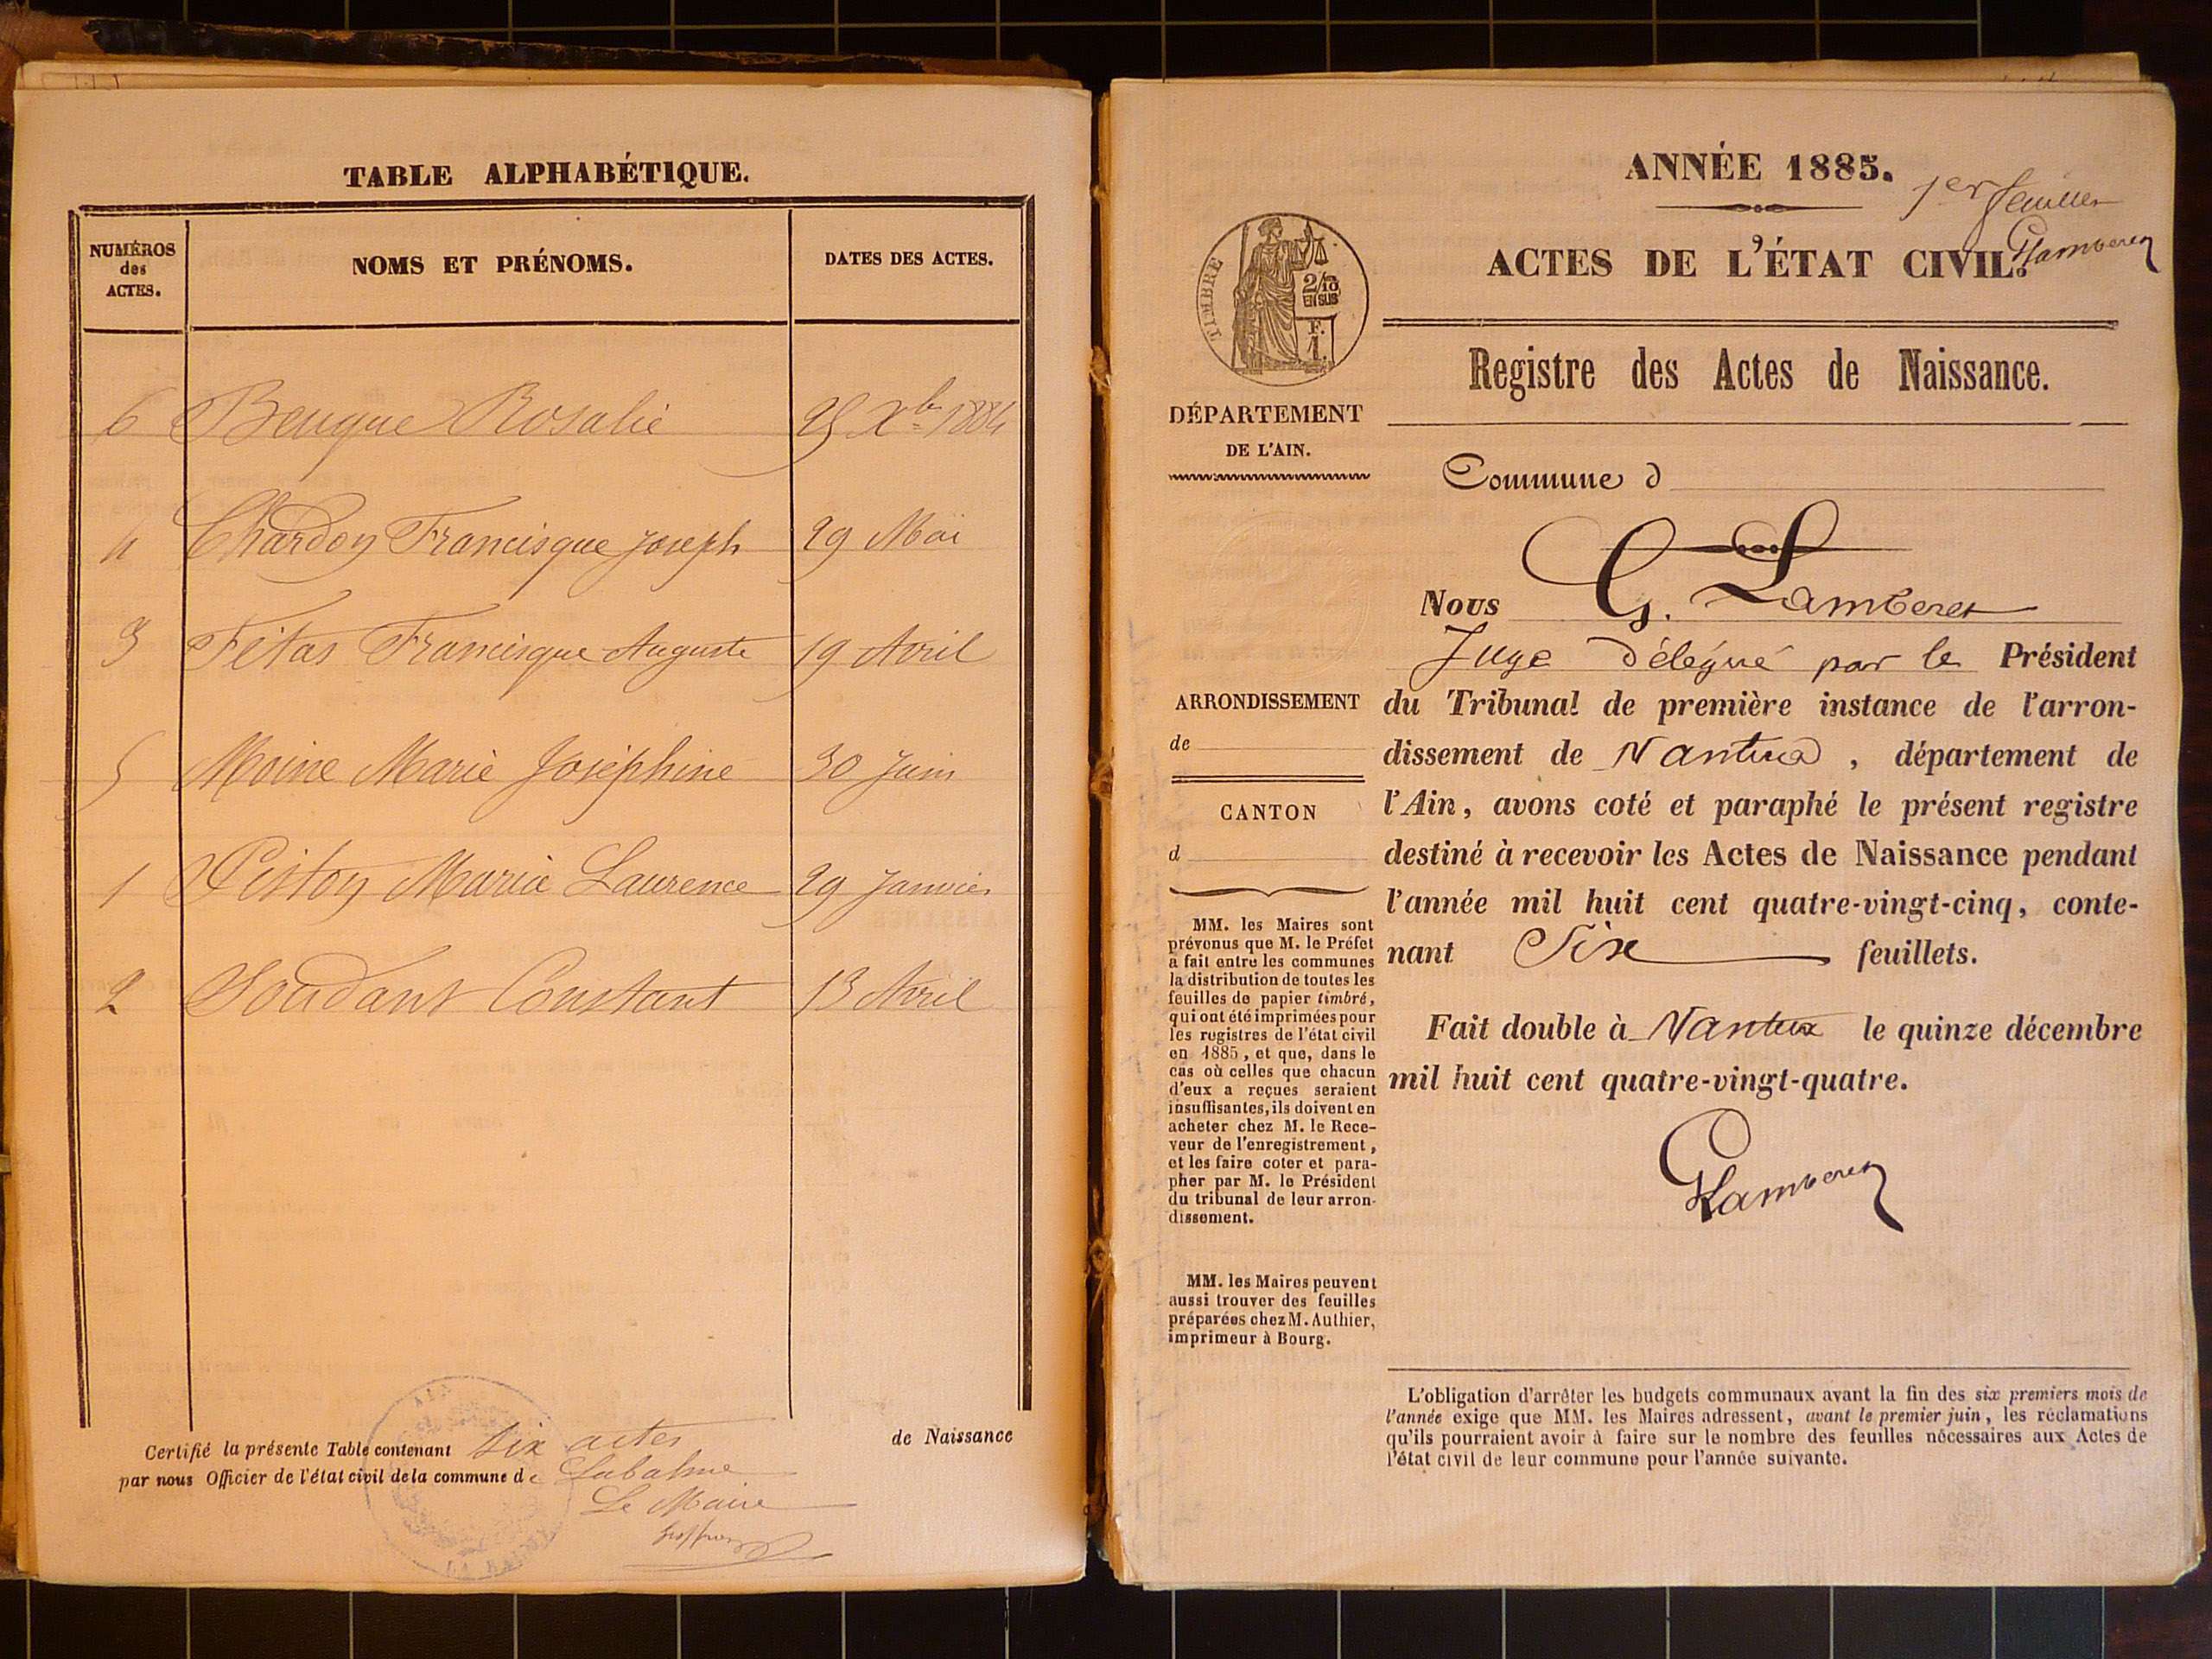 TABLE ALPHABÉTIQUE.
NUMÉROS
des
ACTES.
NOMS ET PRÉNOMS.
DATES DES ACTES.
6 Beuque Rosalie 25 Xbre 1884
4 Chardon Francisque Joseph 29 Mai
3 Fétas Francisque Auguste 19 Avril
5 Moine Marie Joséphine 30 Juin
1 Piston Maria Laurence 29 Janvier
2 Soudant Constant 13 Avril
Certifié la présente Table contenant six actes de Naissance
par nous Officier de l'état civil de la commune de Labalme
Le Maire
ANNÉE 1885.
1er feuillet
GLamberet
ACTES DE L'ÉTAT CIVIL.
TIMBRE
2/10
EN SUS
F.
1.
Registre des Actes de Naissance.
DÉPARTEMENT
DE L'AIN.
Commune d
Nous G. Lamberet
Juge Délégué par le Président
du Tribunal de première instance de l'arron-
dissement de Nantua, département de
l'Ain, avons coté et paraphé le présent registre
destiné à recevoir les Actes de Naissance pendant
l'année mil huit cent quatre-vingt-cinq, conte-
nant Six feuillets.
Fait double à Nantua le quinze décembre
mil huit cent quatre-vingt-quatre.
GLamberet
ARRONDISSEMENT
de
CANTON
d
MM. les Maires sont
prévenus que M. le Préfet
a fait entre les communes
la distribution de toutes les
feuilles de papier timbré,
qui ont été imprimées pour
les registres de l'état civil
en 1885, et que, dans le
cas où celles que chacun
d'eux a reçues seraient
insuffisantes, ils doivent en
acheter chez M. le Rece-
veur de l'enregistrement,
et les faire coter et para-
pher par M. le Président
du tribunal de leur arron-
dissement.
MM. les Maires peuvent
aussi trouver des feuilles
préparées chez M. Authier,
imprimeur à Bourg.
L'obligation d'arrêter les budgets communaux avant la fin des six premiers mois de
l'année exige que MM. les Maires adressent, avant le premier juin, les réclamations
qu'ils pourraient avoir à faire sur le nombre des feuilles nécessaires aux Actes de
l'état civil de leur commune pour l'année suivante.